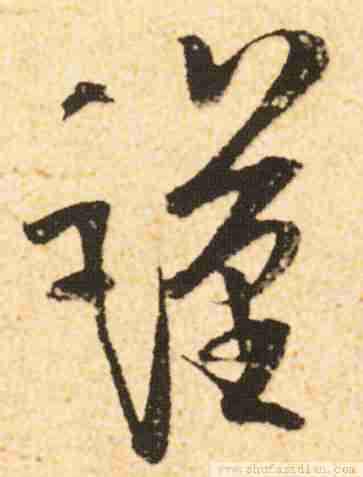 謹
www.shufazidian.com